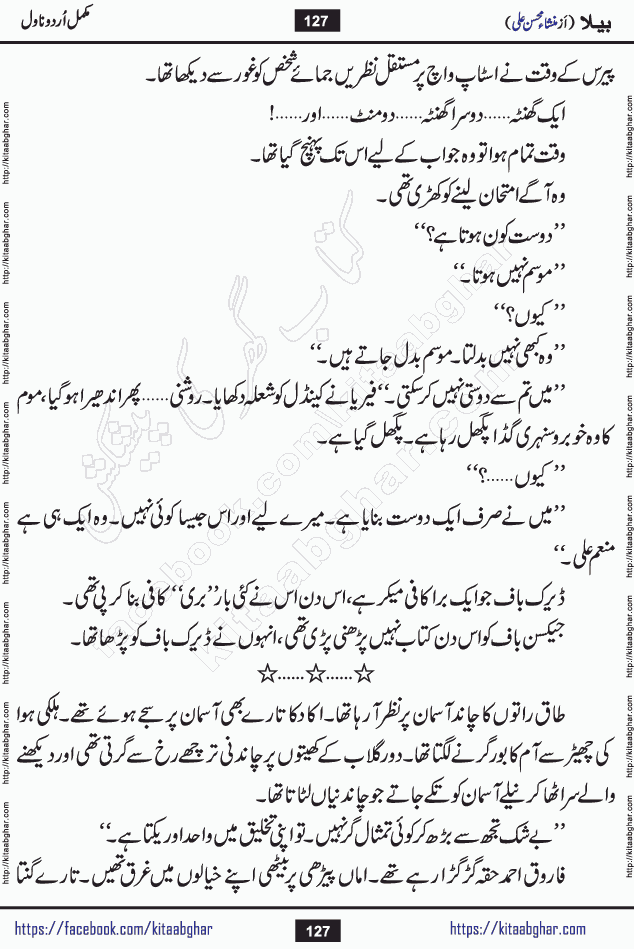 بیلا (از منشاء محسن علی) 127 مکمل اُردو ناول
پیرس کے وقت نے اسٹاپ واچ پر مستقل نظریں جمائے شخص کو غور سے دیکھا تھا۔
ایک گھنٹہ......دوسرا گھنٹہ......دو منٹ......اور......!
وقت تمام ہوا تو وہ جواب کے لیے اس تک پہنچ گیا تھا۔
وہ آگے امتحان لینے کو کھڑی تھی۔
’’دوست کون ہوتا ہے؟‘‘
’’موسم نہیں ہوتا۔‘‘
’’کیوں؟‘‘
’’وہ کبھی نہیں بدلتا۔ موسم بدل جاتے ہیں۔‘‘
’’میں تم سے دوستی نہیں کر سکتی۔‘‘ فیریا نے کینڈل کو شعلہ دکھایا۔ روشنی......پھر اندھیرا ہو گیا، موم
کا وہ خوبرو سنہری گڈا پگھل رہا ہے۔ پگھل گیا ہے۔
’’کیوں......؟‘‘
’’میں نے صرف ایک دوست بنایا ہے۔ میرے لیے اور اس جیسا کوئی نہیں۔ وہ ایک ہی ہے
منعم علی۔‘‘
ڈیرک باف جو ایک برا کافی میکر ہے، اس دن اس نے کئی بار ’’بری‘‘ کافی بنا کر پی تھی۔
جیکسن باف کو اس دن کتاب نہیں پڑھنی پڑی تھی، انہوں نے ڈیرک باف کو پڑھا تھا۔
☆......☆......☆
طاق راتوں کا چاند آسمان پر نظر آ رہا تھا۔ اکا دکا تارے بھی آسمان پر سجے ہوئے تھے۔ ہلکی ہوا
کی چھیڑ سے آم کا بور گرنے لگتا تھا۔ دور گلاب کے کھیتوں پر چاندنی ترچھے رخ سے گرتی تھی اور دیکھنے
والے سر اٹھا کر نیلے آسمان کو تکے جاتے جو چاندنیاں لٹاتا تھا۔
’’بے شک تجھ سے بڑھ کر کوئی تمثال گر نہیں۔ تو اپنی تخلیق میں واحد اور یکتا ہے۔‘‘
فاروق احمد حقہ گڑگڑا رہے تھے۔ اماں پیڑھی پر بیٹھی اپنے خیالوں میں غرق تھیں۔ تارے گنتا
https://facebook.com/kitaabghar 127 https://kitaabghar.com
http://kitaabghar.com
کتاب گھر کی پیشکش
facebook.com/kitaabghar
kitaabghar.com